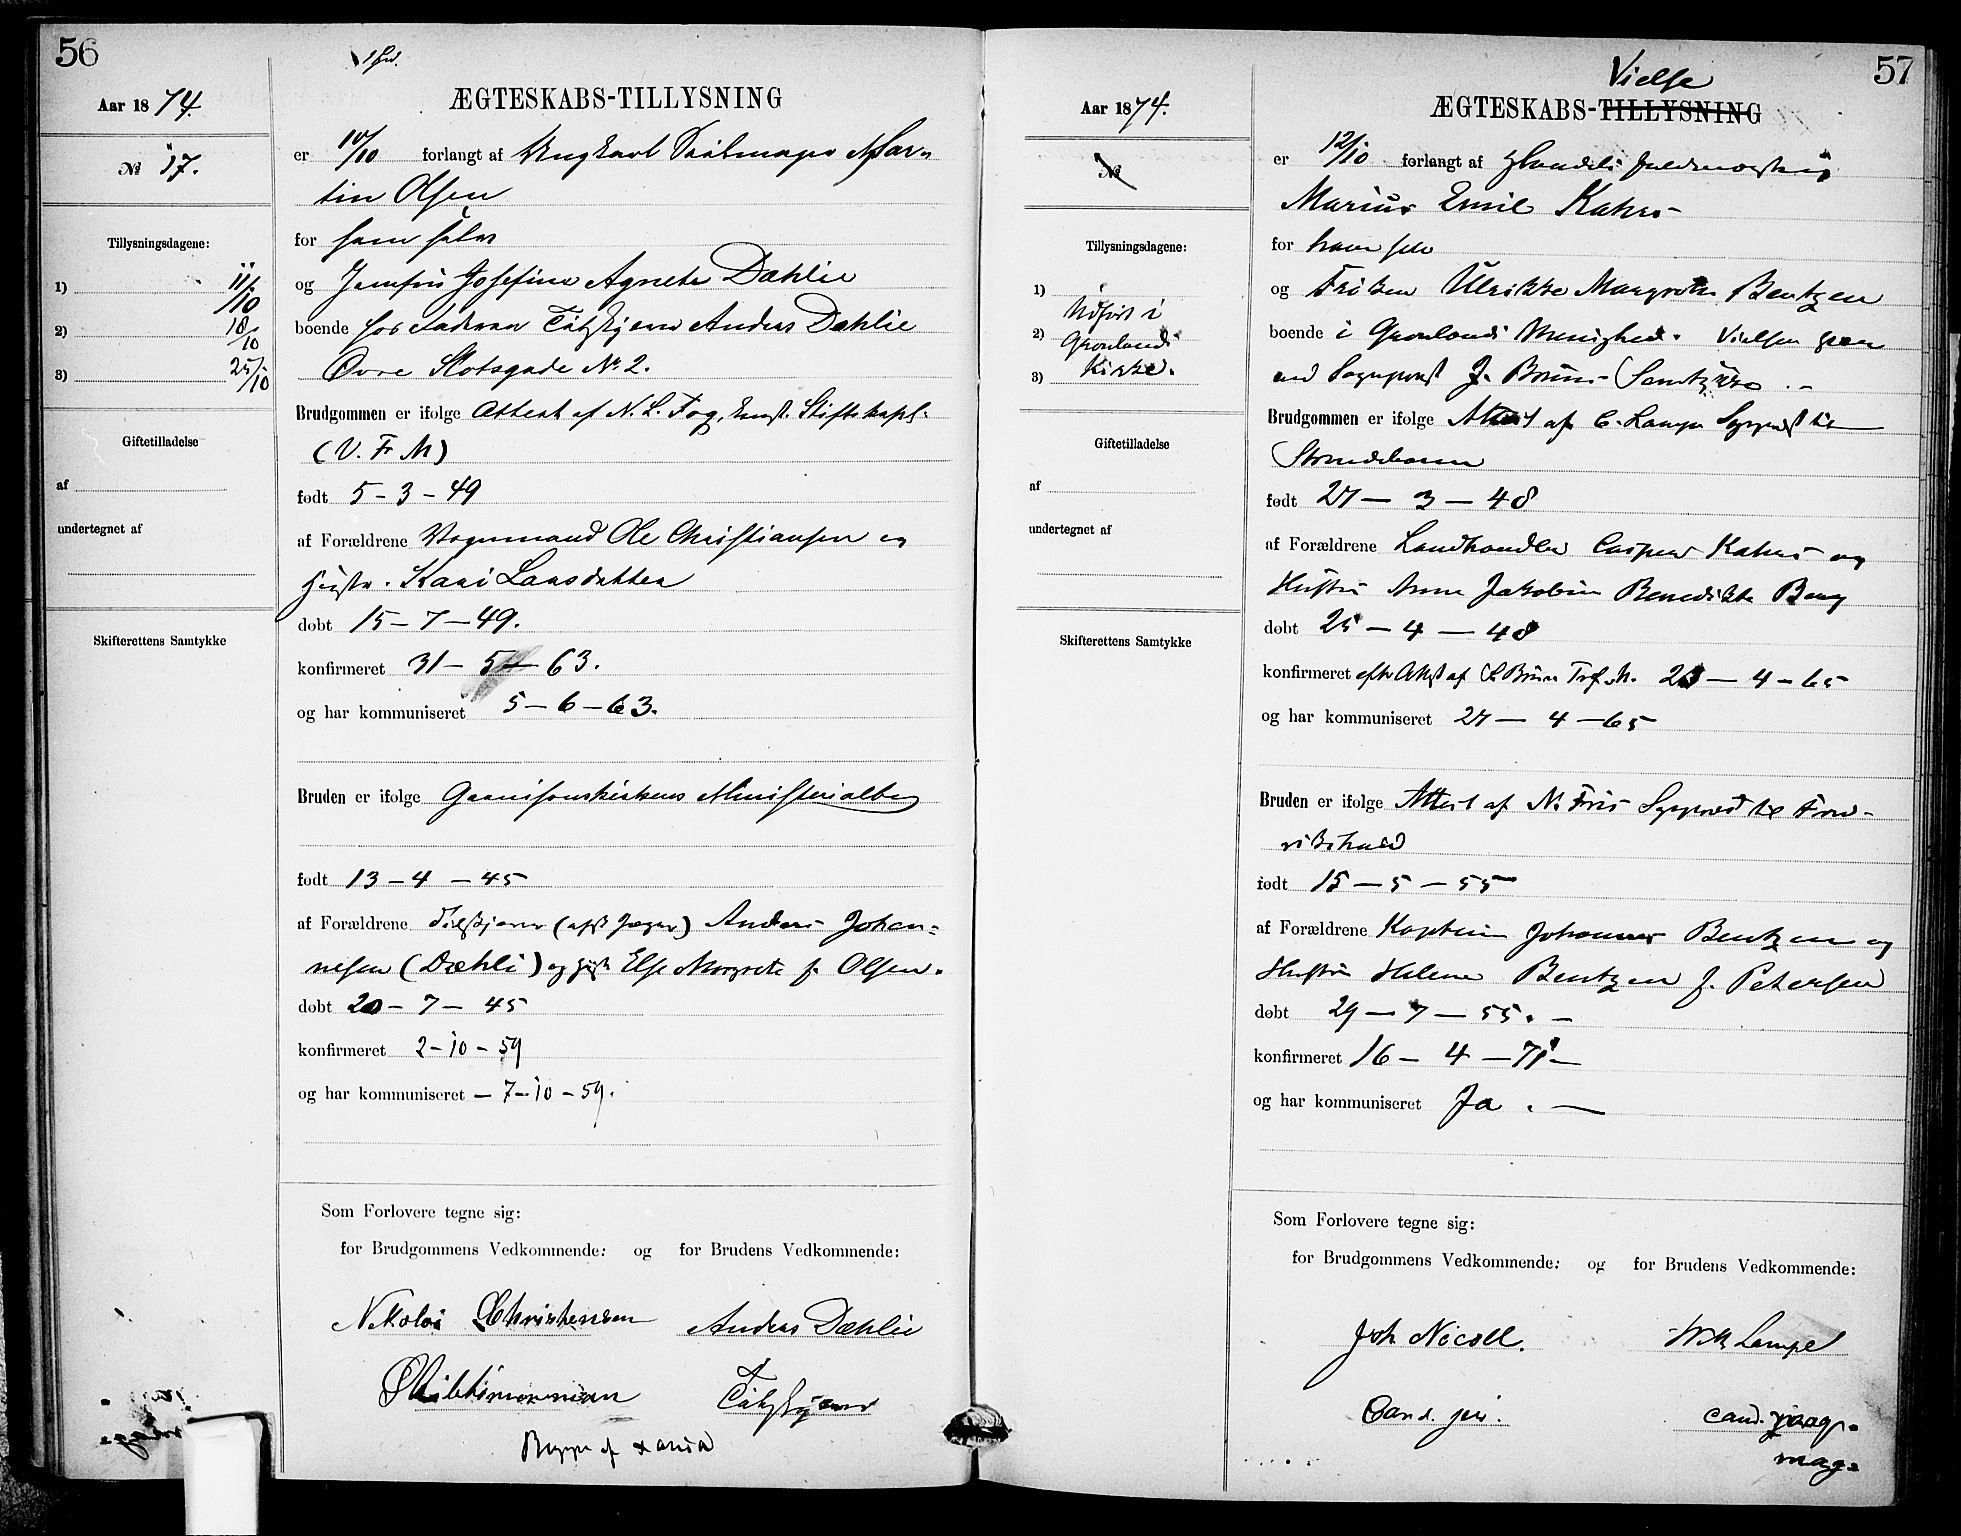 56
Aar 1874.
No 17.
Tillysningsdagene:
1) 11/10
2) 18/10
3) 25/10
Giftetilladelse
af
undertegnet af
Skifterettens Samtykke
ÆGTESKABS-TILLYSNING
er 10/10 forlangt af Ungkarl Mar-
tin Olsen
for ham selv
og Jomfru Josefine Agnete Dæhlie
boende hos Faderen Anders Dæhlie
Øvre Slotsgade No 2.
Brudgommen er ifølge Attest af N. L. Fog, Stiftskapl.
(V. Fr. M)
født 5-3-49
af Forældrene Vognmand Ole Christiansen og
Hustr. Kari Larsdatter
døbt 15-7-49.
konfirmeret 31-5-63.
og har kommuniseret 5-6-63.
Bruden er ifølge Garnisonskirkens Ministerialbog
født 13-4-45
af Forældrene (afsk Jæger) Anders Johan-
nesen (Dæhli) og Else Margrete f. Olsen.
døbt 20-7-45
konfirmeret 2-10-59
og har kommuniseret - 7-10-59.
Som Forlovere tegne sig:
for Brudgommens Vedkommende: og for Brudens Vedkommende:
Nikolai Christensen Anders Dæhlie
Begge af
57
Aar 1874.
No
Tillysningsdagene:
1)
Udført i
2) Grønlands
3) Kirke.
Giftetilladelse
af
undertegnet af
Skifterettens Samtykke
Vielse
ÆGTESKABS-TILLYSNING
er 12/10 forlangt af Handelsfuldmægtig
Marius Emil Kahrs
for ham selv
og Frøken Ulrikke Margrethe Bentzen
boende i Grønlands Menighed. Vielsen
ved Sogneprest J. Bruun
Brudgommen er ifølge Attest af C. Lange Sognepr til
født 27-3-48
af Forældrene Landhandler Casper Kahrs og
Hustru Anne Jakobine Benedikte Berg
døbt 25-4-48
konfirmeret efter Attest af C Bruun Tref. M. 23-4-65
og har kommuniseret 27-4-65
Bruden er ifølge Attest af N. Friis Sognepr til Fred-
rikshald
født 15-5-55
af Forældrene Kaptein Johannes Bentzen og
Hustru Helene Bentzen f. Petersen
døbt 29-7-55. -
konfirmeret 16-4-71 -
og har kommuniseret Ja. -
Som Forlovere tegne sig:
for Brudgommens Vedkommende: og for Brudens Vedkommende:
Joh Nicoll.
Cand. jur. cand.
mag.